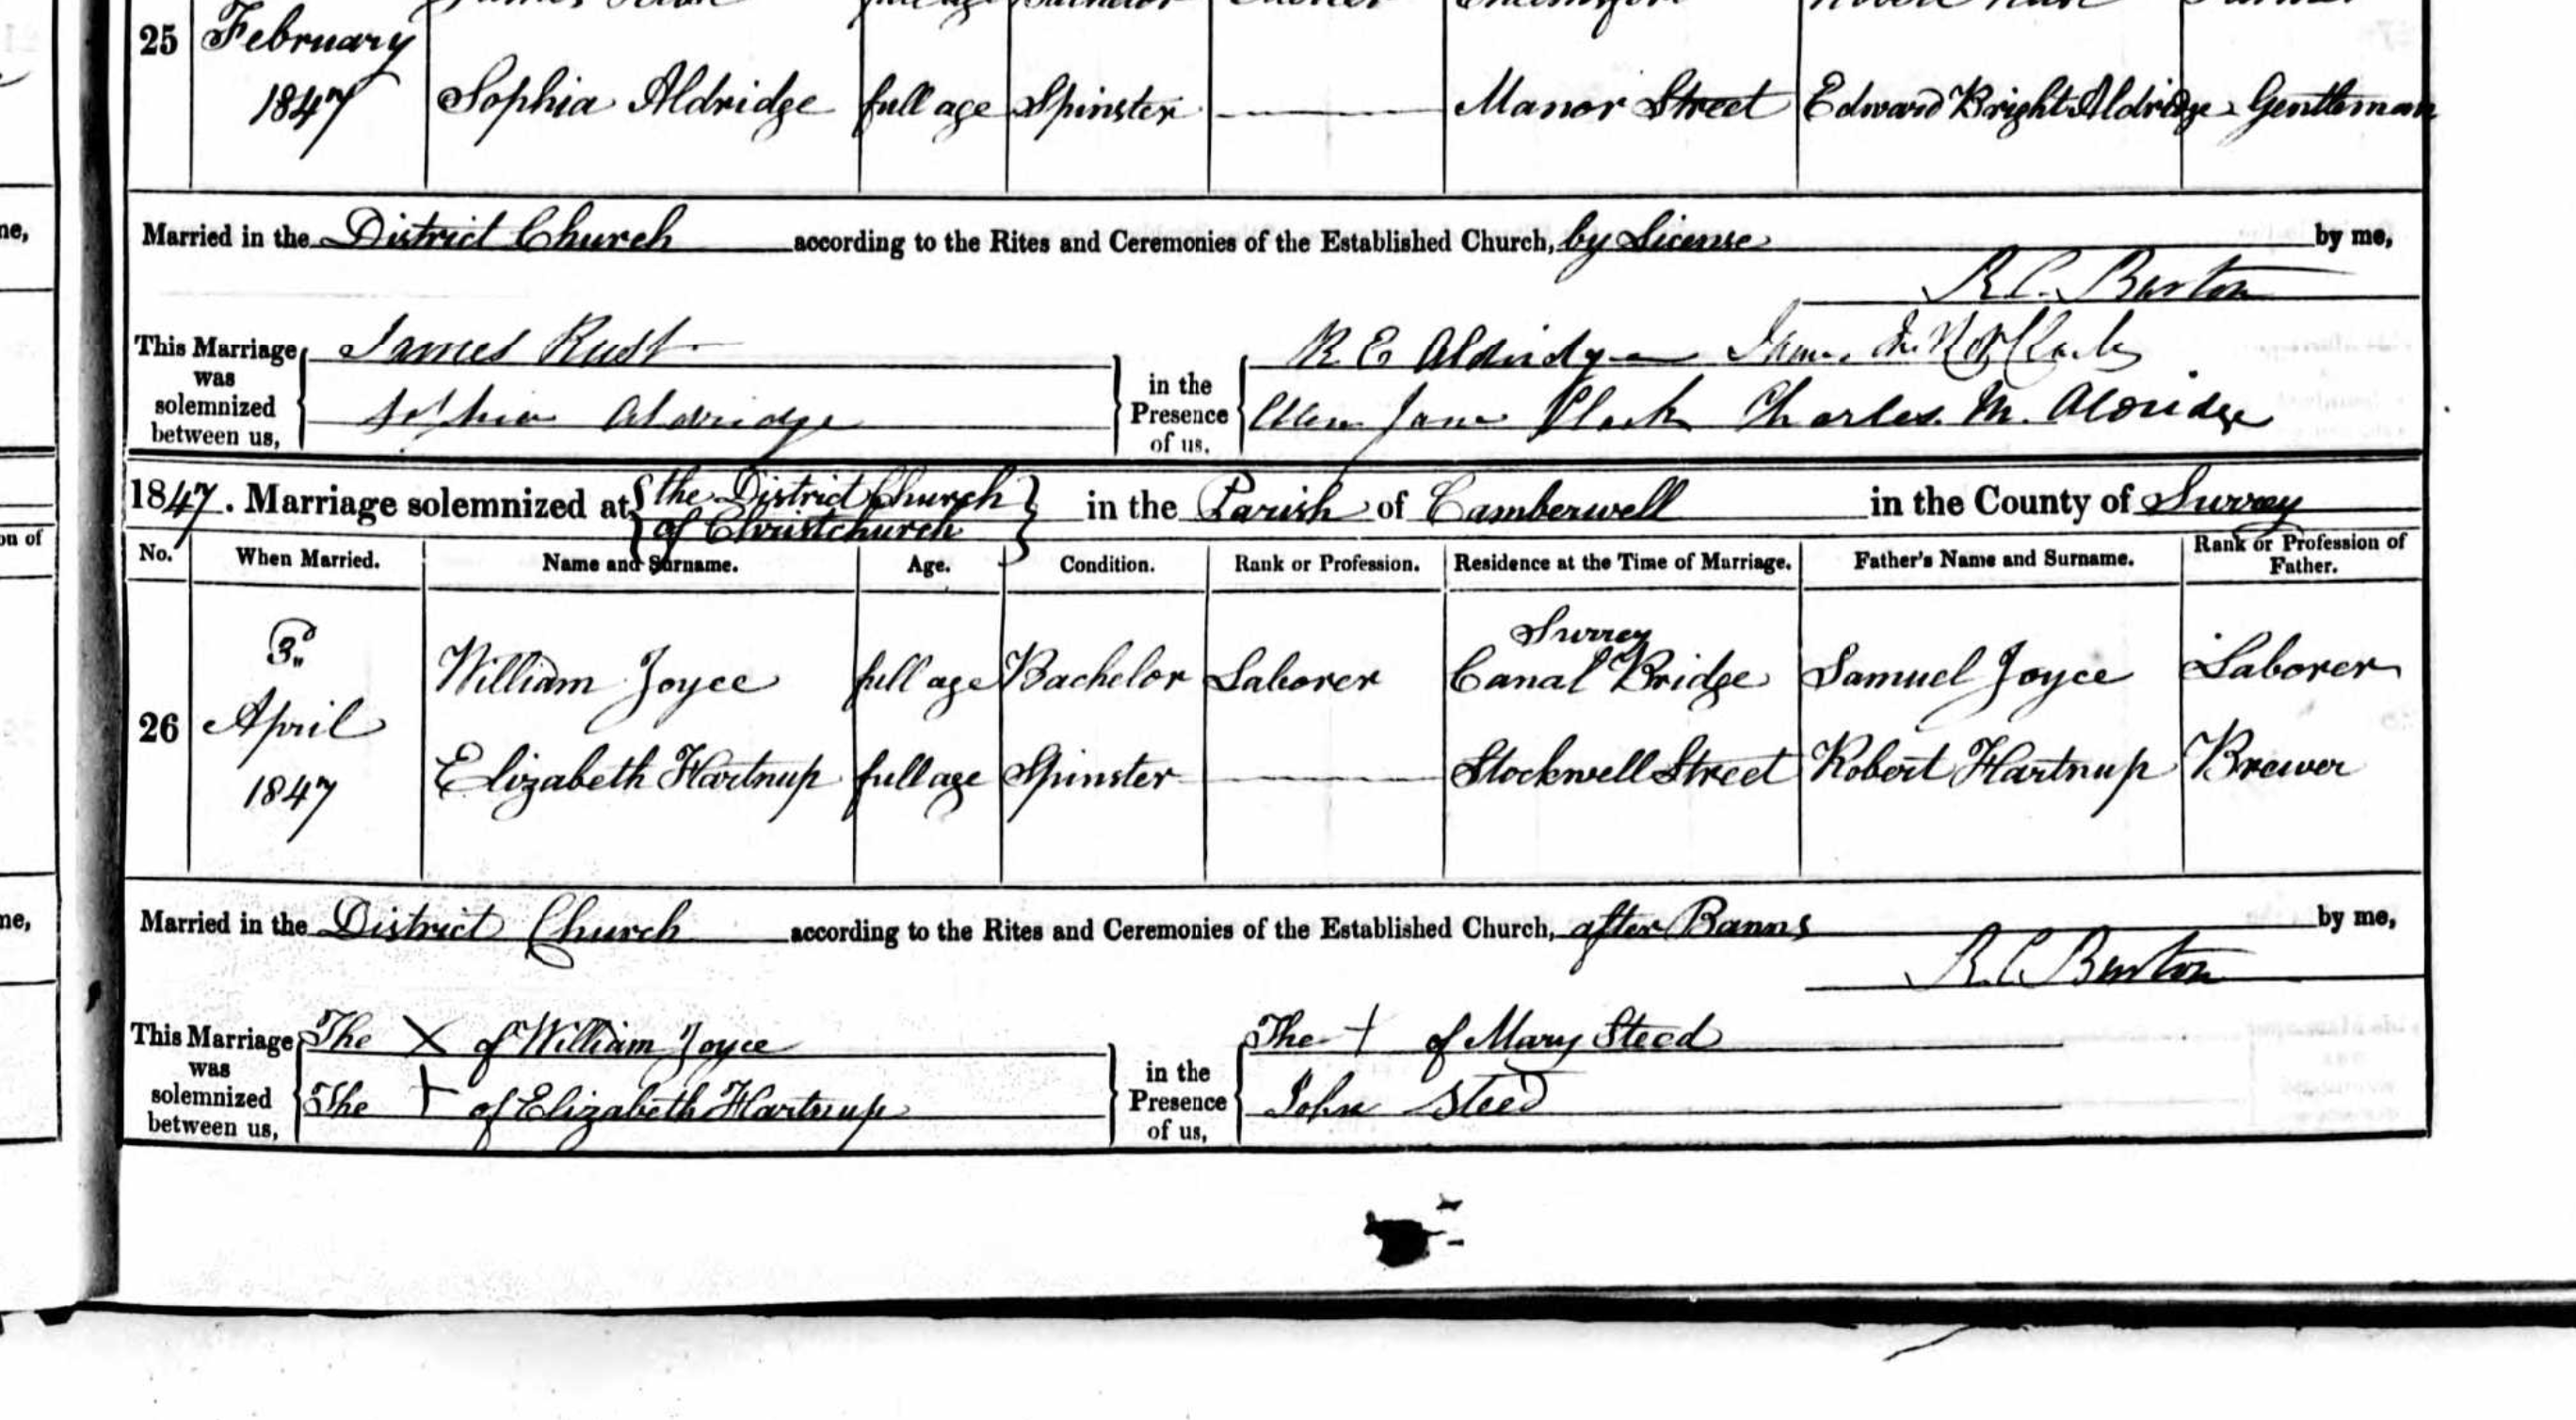 25 February
1847 Sophia Aldridge full age Spinster Manor Street Edward Bright Aldridge Gentleman
Married in the District Church according to the Rites and Ceremonies of the Established Church, by License by me,
R.C. Burton
This Marriage was solemnized between us,
James Rust
Sophia Aldridge
in the Presence of us,
R E Aldridge James
Ellen Jane Clark Charles M. Aldridge
1847. Marriage solemnized at the District Church of Christchurch in the Parish of Camberwell in the County of Surrey
No. When Married. Name and Surname. Age. Condition. Rank or Profession. Residence at the Time of Marriage. Father's Name and Surname. Rank or Profession of Father.
26 3d April 1847
William Joyce full age Bachelor Laborer Surrey Canal Bridge Samuel Joyce Laborer
Elizabeth Hartnup full age Spinster Stockwell Street Robert Hartnup Brewer
Married in the District Church according to the Rites and Ceremonies of the Established Church, after Banns by me,
R.C Burton
This Marriage was solemnized between us,
The X of William Joyce
The + of Elizabeth Hartnup
in the Presence of us,
The + of Mary Steed
John Steed